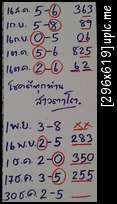 16 ส.ค 5-6 363
1 ก.ย 5-8 89
16 ก.ย 0-5 06
1 ต.ค 5-6 825
16 ต.ค 2-6 62
โชคดีทุกท่าน
สาวดาโต
1 พ.ย. 3-8 xx
16 พ.ย 2-5 283
1 ธ.ค 2-0 350
17 ธ.ค 3-5 255
30 ธ.ค 2-5
[296x619] uplc.me